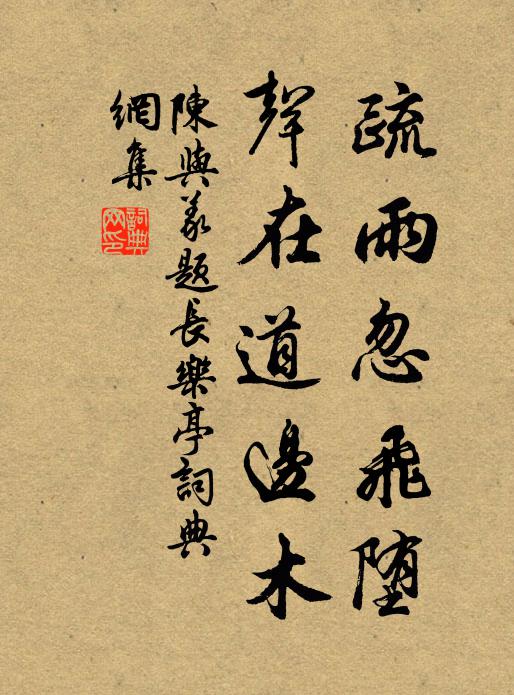 疏雨忽飛墮
聲在道邊木
陳與義題長樂亭詞典
網集
詞典網印